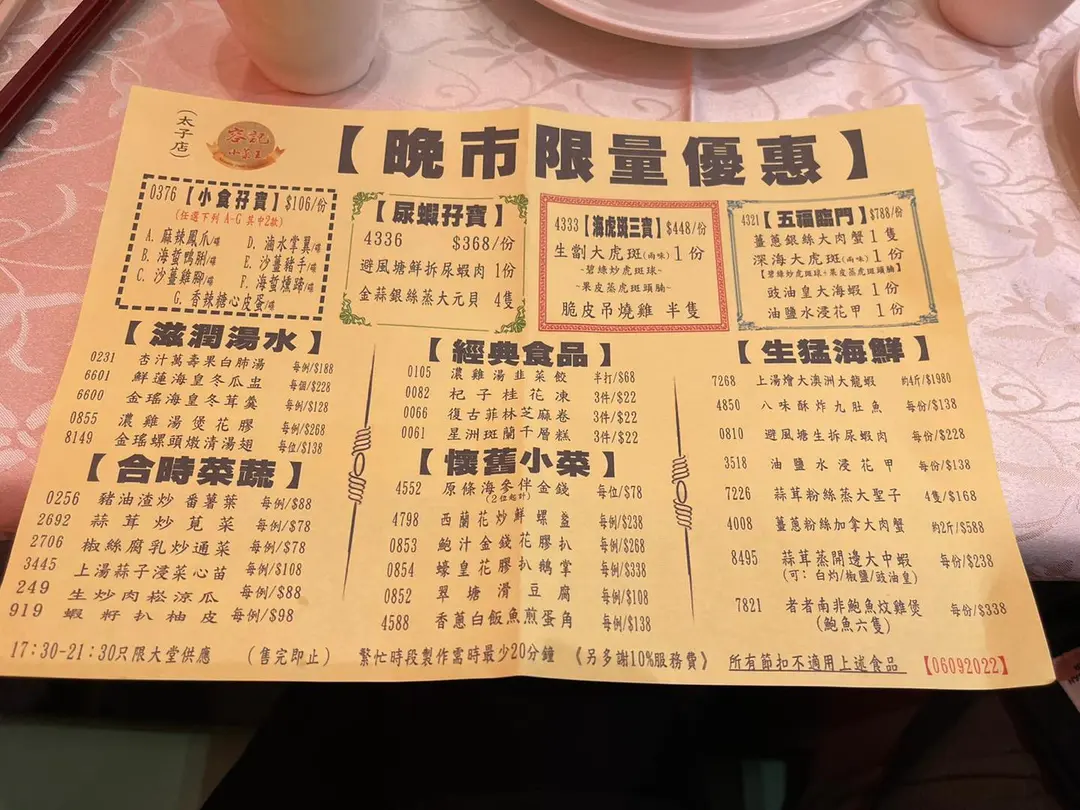 (太子店)
容記
小菜王
【晚市限量優惠】
0376【小食孖寶】$106/份
(任選下列 A-G 其中2款)
A. 麻辣鳳爪/碟
B. 海蜇鴨脷/碟
C. 沙薑雞腳/碟
D. 滷水掌翼/碟
E. 沙薑豬手/碟
F. 海蜇燻蹄/碟
G. 香辣糖心皮蛋/碟
【尿蝦孖寶】
4336 $368/份
避風塘鮮拆尿蝦肉 1份
金蒜銀絲蒸大元貝 4隻
4333【海虎斑三寶】$448/份
生劏大虎斑(兩味)1份
~碧綠炒虎斑球~
~果皮蒸虎斑頭腩~
脆皮吊燒雞 半隻
4321【五福臨門】$788/份
薑蔥銀絲大肉蟹 1隻
深海大虎斑(兩味)1份
【碧綠炒虎斑球+果皮蒸虎斑頭腩】
豉油皇大海蝦 1份
油鹽水浸花甲 1份
【滋潤湯水】
0231 杏汁萬壽果白肺湯 每例/$188
6601 鮮蓮海皇冬瓜盅 每個/$228
6600 金瑤海皇冬茸羹 每例/$128
0855 濃雞湯煲花膠 每例/$268
8149 金瑤螺頭燉清湯翅 每位/$138
【合時菜蔬】
0256 豬油渣炒番薯葉 每例/$88
2692 蒜茸炒莧菜 每例/$78
2706 椒絲腐乳炒通菜 每例/$78
3445 上湯蒜子浸菜心苗 每例/$108
249 生炒肉崧涼瓜 每例/$88
919 蝦籽扒柚皮 每例/$98
【經典食品】
0105 濃雞湯韭菜餃 半打/$68
0082 杞子桂花凍 3件/$22
0066 復古菲林芝麻卷 3件/$22
0061 星洲斑蘭千層糕 3件/$22
【懷舊小菜】
4552 原條海參伴金錢 每位/$78
(2位起計)
4798 西蘭花炒鮮螺盞 每例/$238
0853 鮑汁金錢花膠扒 每例/$268
0854 蠔皇花膠扒鵝掌 每例/$338
0852 翠塘滑豆腐 每例/$108
4588 香蔥白飯魚煎蛋角 每例/$138
【生猛海鮮】
7268 上湯燴大澳洲大龍蝦 約4斤/$1980
4850 八味酥炸九肚魚 每份/$138
0810 避風塘生拆尿蝦肉 每份/$228
3518 油鹽水浸花甲 每份/$138
7226 蒜茸粉絲蒸大聖子 4隻/$168
4008 薑蔥粉絲加拿大肉蟹 約2斤/$588
8495 蒜茸蒸開邊大中蝦 每份/$238
(可:白灼/椒鹽/豉油皇)
7821 者者南非鮑魚炆雞煲 每份/$338
(鮑魚六隻)
17:30-21:30只限大堂供應 (售完即止) 繁忙時段製作需時最少20分鐘 《另多謝10%服務費》 所有節扣不適用上述食品 【06092022】